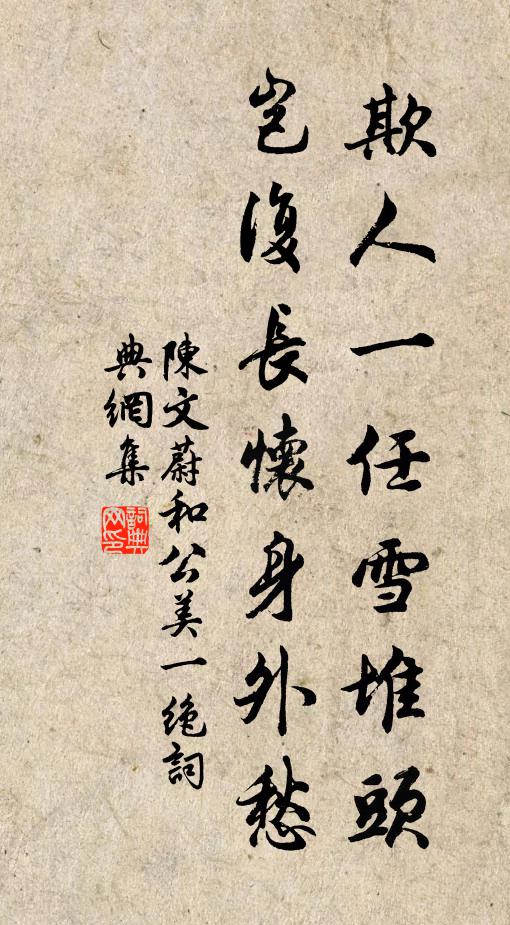 欺人一任雪堆頭
豈復長懷身外愁
陳文蔚和公美一絶詞
典網集
詞典
网印